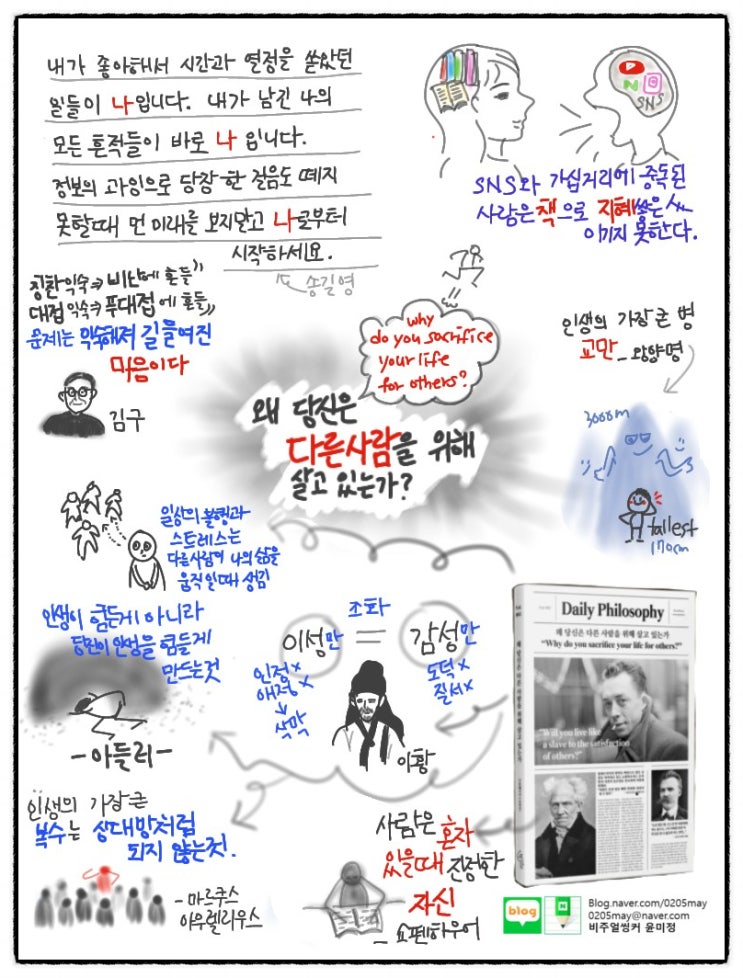 내가 좋아해서 시간과 열정을 쏟았던
일들이 나입니다. 내가 남긴 나의
모든 흔적들이 바로 나 입니다.
정보의 과잉으로 당장 한 걸음도 떼지
못할때 먼 미래를 보지말고 나로부터
시작하세요.
송길영
SNS
SNS와 가십거리에 중독된
사람은 책으로 지혜쌓은 人
이기지 못한다.
칭찬익숙→비난에 흔들〃
대접익숙→푸대접에 흔들〃
문제는 익숙해져 길들여진
마음이다
김구
why
do you sacrifice
your life
for others?
왜 당신은
다른사람을 위해
살고 있는가?
인생의 가장 큰 병
교만 _ 왕양명
3000m
tallest
170cm
일상의 불행과
스트레스는
다른사람이 나의 삶을
움직일때 생김
인생이 힘든게 아니라
당신이 인생을 힘들게
만드는것
-아들러-
조화
이성만 = 감성만
인정x
애정x
↓
삭막
도덕x
질서x
이황
인생의 가장큰
복수는 상대방처럼
되지 않는것.
- 마르쿠스
아우렐리우스
사람은 혼자
있을때 진정한
자신
_쇼펜하우어
Daily Philosophy
왜 당신은 다른 사람을 위해 살고 있는가
"Why do you sacrifice your life for others?"
왜 당신은 다른 사람을 위해 살고 있는가
"Will you live like
a slave to the satisfaction
of others?"
blog
Blog.naver.com/0205may
0205may@naver.com
비주얼씽커 윤미정